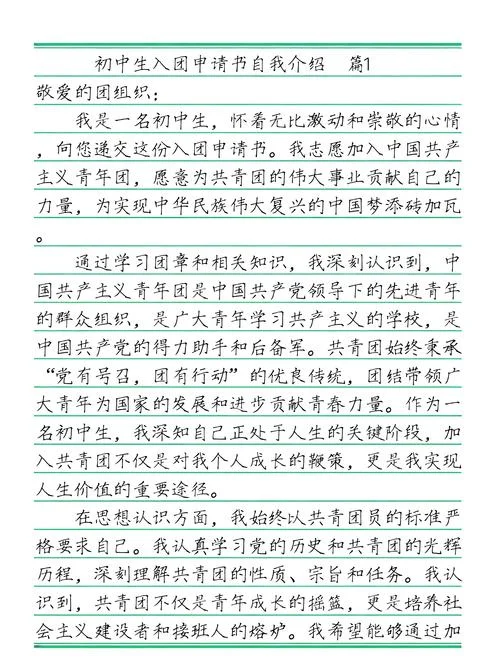 初中生入团申请书自我介绍 篇1
敬爱的团组织：
我是一名初中生，怀着无比激动和崇敬的心情
，向您递交这份入团申请书。我志愿加入中国共产
主义青年团，愿意为共青团的伟大事业贡献自己的
力量，为实现中华民族伟大复兴的中国梦添砖加瓦
。
通过学习团章和相关知识，我深刻认识到，中
国共产主义青年团是中国共产党领导下的先进青年
的群众组织，是广大青年学习共产主义的学校，是
中国共产党的得力助手和后备军。共青团始终秉承
“党有号召，团有行动”的优良传统，团结带领广
大青年为国家的发展和进步贡献青春力量。作为一
名初中生，我深知自己正处于人生的关键阶段，加
入共青团不仅是对我个人成长的鞭策，更是我实现
人生价值的重要途径。
在思想认识方面，我始终以共青团员的标准严
格要求自己。我认真学习党的历史和共青团的光辉
历程，深刻理解共青团的性质、宗旨和任务。我认
识到，共青团不仅是青年成长的摇篮，更是培养社
会主义建设者和接班人的熔炉。我希望能够通过加